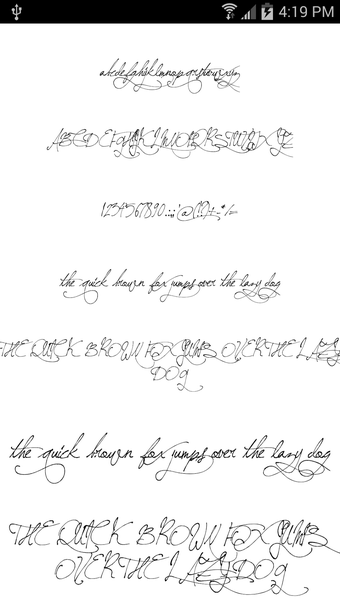 4:19 PM
abcdefghijklmnopqrstuvwxyz
ABCDEFGHIJKLMNOPQRSTUVWXYZ
1234567890.:,;'@(!?)+-*/=
the quick brown fox jumps over the lazy dog
THE QUICK BROWN FOX JUMPS OVER THE LAZY
DOG
the quick brown fox jumps over the lazy dog
THE QUICK BROWN FOX JUMPS
OVER THE LAZY DOG